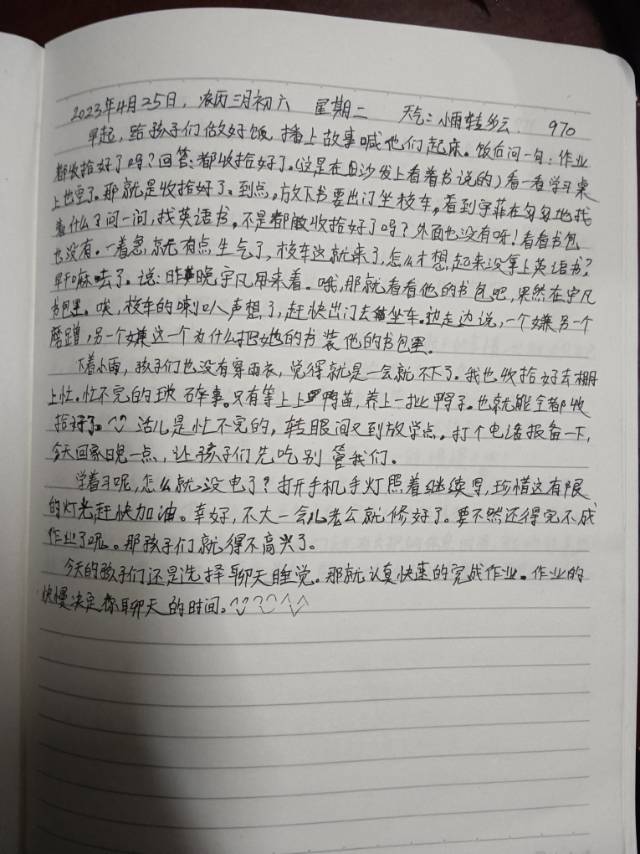 2023年4月25日，农历三月初六 星期二 天气：小雨转多云 970
早起，给孩子们做好饭，播上故事喊他们起床。饭后问一句：作业
都收拾好了吗？回答：都收拾好了。（这是在旧沙发上看着书说的）看一看学习桌
上也空了。那就是收拾好了。到点，放下书要出门坐校车，看到宇菲在匆匆地找
什么？问一问，找英语书，不是都收拾好了吗？外面也没有呀！看看书包
也没有。一着急，就有点生气了，校车这就来了，怎么才想起来没拿上英语书？
早干嘛去了。说：昨晚，宇凡用来着。哦，那就看看他的书包吧，果然在宇凡
书包里。唉，校车的喇叭声想了，赶快出门去坐车。边走边说，一个嫌另一个
磨蹭，另一个嫌这一个为什么把她的书装他的书包里。
下着小雨，孩子们也没有穿雨衣，觉得就是一会就不下了。我也收拾好去棚
上忙。忙不完的琐碎事。只有等上上鸭苗，养上一批鸭子。也就能全都收
拾好了。活儿是忙不完的，转眼间又到放学点。打个电话报备一下，
今天回家晚一点，让孩子们先吃别管我们。
学着习呢，怎么就没电了？打开手机手灯照着继续写，珍惜这有限
的灯光，赶快加油。幸好，不大一会儿老公就修好了。要不然还得完不成
作业了呢。那孩子们就得不高兴了。
今天的孩子们还是选择聊天睡觉。那就认真快速的完成作业。作业的
快慢决定你聊天的时间。